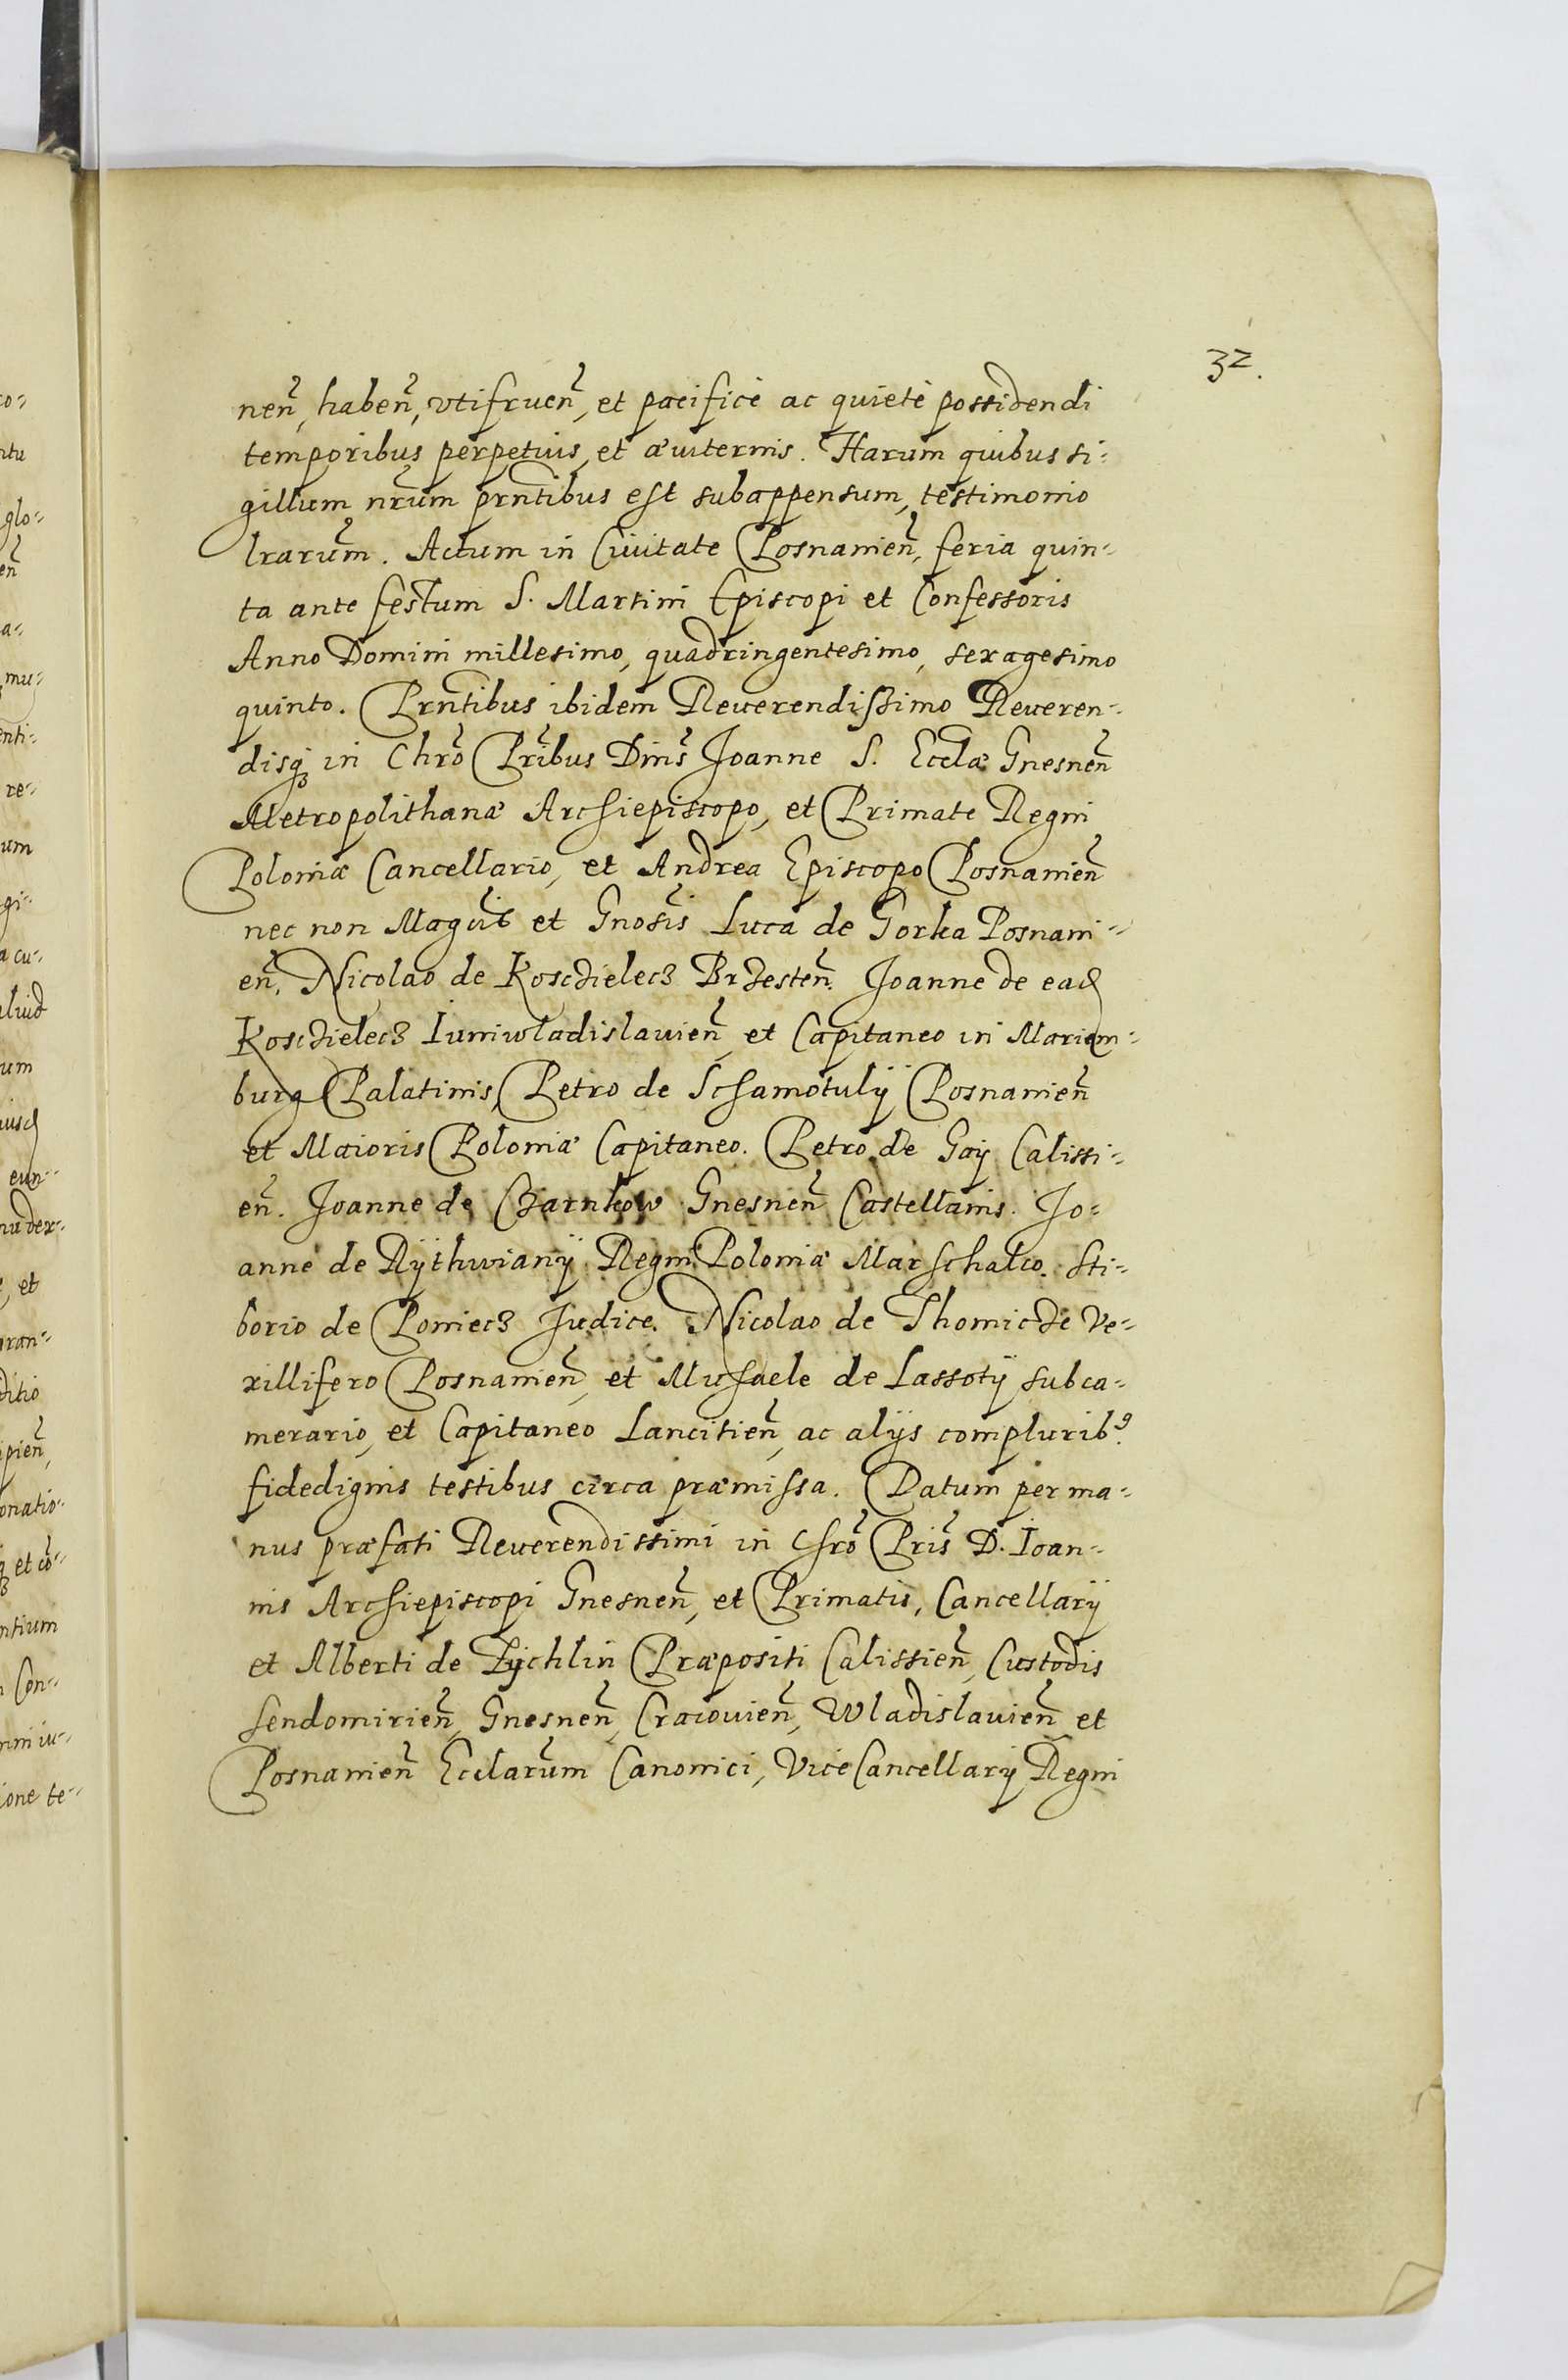 32.
neñ, habeñ, vtifrueñ, et pacificè ac quietè possidendi
temporibus perpetuis, et æuiternis. Harum quibus si=
gillum nrũm prñtibus est subappensum, testimonio
lrarũm. Actum in Ciuitate Posnanieñ, feria quin=
ta ante festum S. Martini Episcopi et Confessoris
Anno Domini millesimo, quadringentesimo, sexagesimo
quinto. Prñtibus ibidem Reuerendißimo Reueren=
disq3 in Chrõ Pribus Dnis Joanne S. Ecclæ Gnesneñ
Metropolithanæ Archiepiscopo, et Primate Regni
Poloniæ Cancellario, et Andrea Episcopo Posnanieñ
nec non Magcis et Gnosis Luca de Gorka Posnani=
eñ, Nicolao de Kosczielecz Brzesteñ. Joanne de ead
Kosczielecz Iuniwladislauieñ, et Capitaneo in Mariem=
burg Palatinis, Petro de Schamotulÿ Posnanieñ
et Maioris Poloniæ Capitaneo. Petro de Gaÿ Calissi=
eñ. Joanne de Czarnkow Gnesneñ Castellanis. Jo=
anne de Rÿthwianÿ Regni Poloniæ Marschalco. Sti=
borio de Poniecz Judice. Nicolao de Thomicze Ve=
xillifero Posnanieñ, et Michaele de Lassotÿ subca=
merario, et Capitaneo Lancitieñ, ac alÿs compluribꝰ
fidedignis testibus circa præmissa. Datum per ma=
nus præfati Reuerendissimi in Chrõ Pris D. Ioan=
nis Archiepiscopi Gnesneñ, et Primatis, Cancellarÿ
et Alberti de Zÿchlin Præpositi Calissieñ, Custodis
Sendomirieñ, Gnesneñ, Cracouieñ, Wladislauieñ et
Posnanieñ Ecclarũm Canonici, ViceCancellarÿ Regni